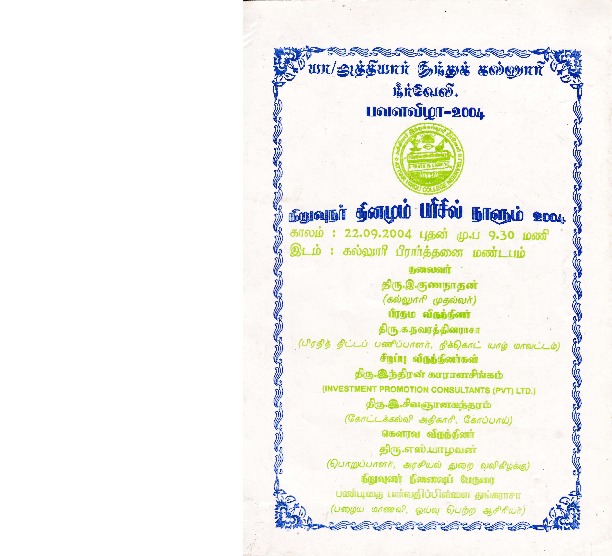 யா/அத்தியார் இந்துக் கல்லூரி
நீர்வேலி.
பவளவிழா-2004
நிறுவுநர் தினமும் பரிசில் நாளும் 2004
காலம் : 22.09.2004 புதன் மு.ப 9.30 மணி
இடம் : கல்லூரி பிரார்த்தனை மண்டபம்
தலைவர்
திரு.இ.குணநாதன்
(கல்லூரி முதல்வர்)
பிரதம விருந்தினர்
திரு.க.நவரத்தினராசா
(பிரதித் திட்டப் பணிப்பாளர், நிக்கொட் யாழ் மாவட்டம்)
சிறப்பு விருந்தினர்கள்
திரு.இந்திரன்
(INVESTMENT PROMOTION CONSULTANTS (PVT) LTD.)
திரு.இ.சிவஞானசுந்தரம்
(கோட்டக்கல்வி அதிகாரி, கோப்பாய்)
கௌரவ விருந்தினர்
திரு.எஸ்.யாழவன்
(பொறுப்பாளர், அரசியல் துறை வலிகிழக்கு)
நிறுவுனர் நினைவுப் பேருரை
பண்டிதை பார்வதிப்பிள்ளை துங்கராசா
(பழைய மாணவி, ஓய்வு பெற்ற ஆசிரியர்)